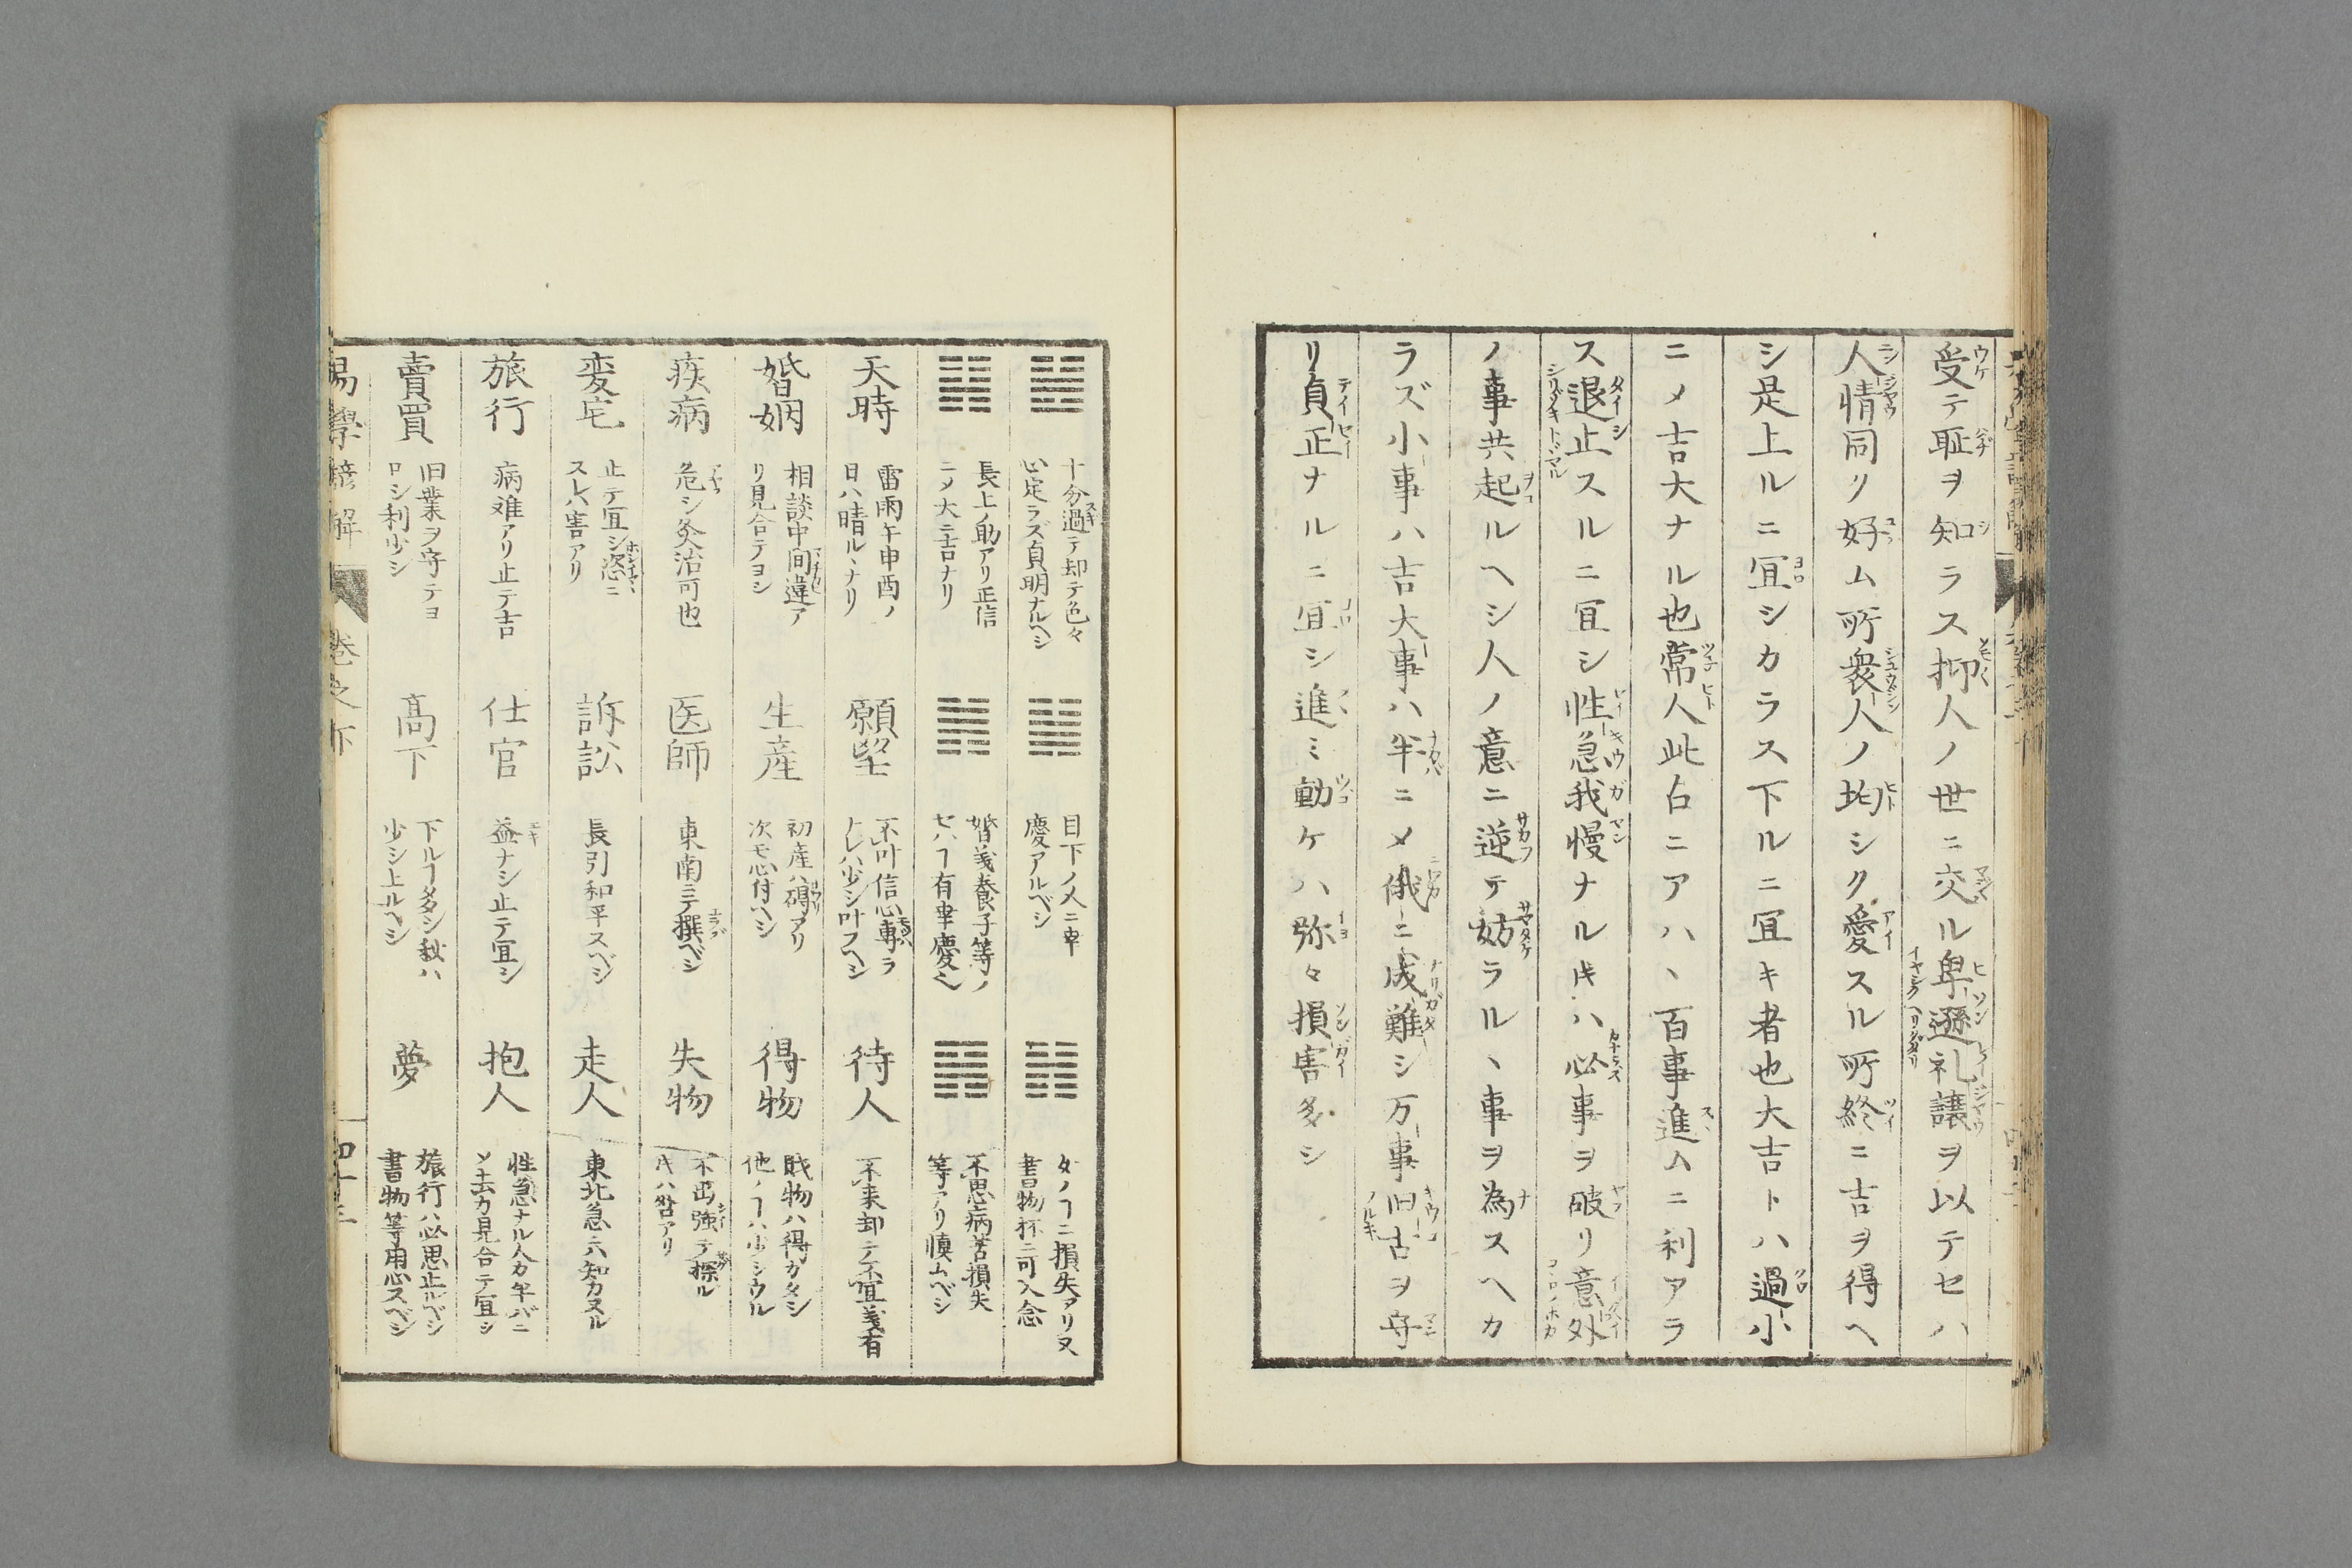 受テ耻ヲ知ラス抑人ノ世ニ交ル卑遜礼譲ヲ以テセハ
人情同ク好ム所衆人ノ均シク愛スル所終ニ吉ヲ得ヘ
シ是上ルニ宜シカラス下ルニ宜キ者也大吉トハ過小
ニメ吉大ナル也常人此占ニアハヽ百事進ムニ利アラ
ス退止スルニ宜シ性急我慢ナルキハ必事ヲ破リ意外
ノ事共起ルヘシ人ノ意ニ逆テ妨ラルヽ事ヲ為スヘカ
ラズ小事ハ吉大事ハ半ニメ俄ニ成難シ万事旧古ヲ守
リ貞正ナルニ宜シ進ミ動ケハ弥々損害多シ
䷽ 十分過テ却テ色々
心定ラズ貞明ナルヘシ
目下ノ人ニ事
慶アルベシ
女ノヿニ損失アリ又
書物杯ニ可入念
長上ノ助アリ正信
ニメ大ニ吉ナリ
婚義養子等ノ
セハヿ有事慶ベシ
不思病苦損失
等アリ慎ムベシ
天時 雷雨午申酉ノ
日ハ晴ルヽナリ
願望 不叶信心専ラ
ナレハ少シ叶フヘシ
待人 不来却テ不宜義有
婚姻 相談中間違ア
リ見合テヨシ
生産 初産ハ碍アリ
次モ心付ヘシ
得物 賎物ハ得カタシ
他ノヿハ少シウル
疾病 危シ灸治可也
医師 東南ニテ撰ベシ
失物 不出強テ探ル
キハ咎アリ
変宅 止テ宜シ恣ニ
スレハ害アリ
訴訟 長引和平スベシ
走人 東北急ニ六知カヌル
旅行 病难アリ止テ吉
仕官 益ナシ止テ宜シ
抱人 性急ナル人カ半バニ
ソ去カ見合テ宜シ
賣買 旧業ヲ守テヨ
ロシ利少シ
高下 下ルヿ多シ秋ハ
少シ上ルヘシ
夢 旅行ハ必思止ルベシ
書物等用心スベシ
易學 解 巻之下 四十三